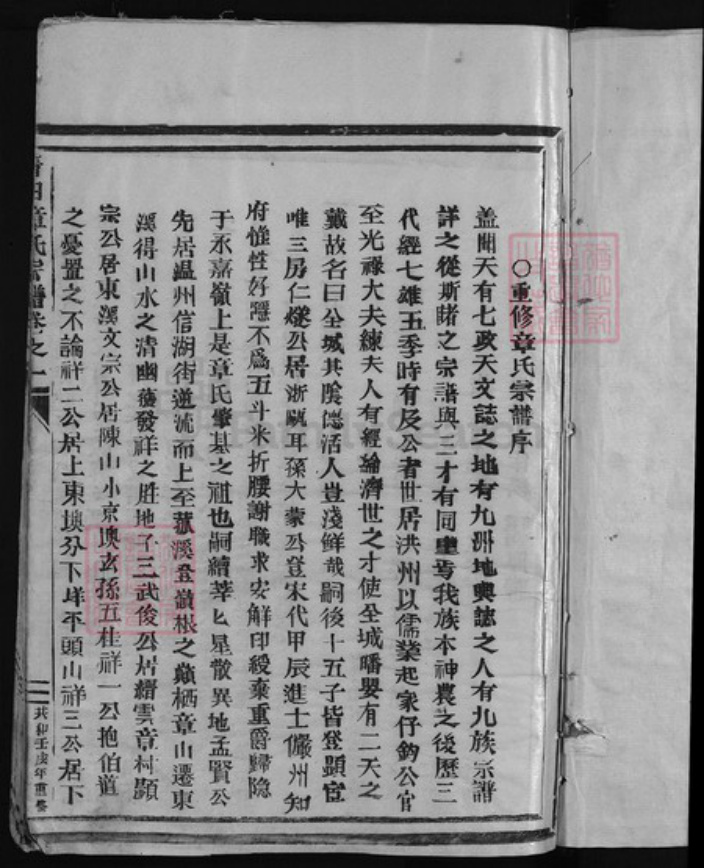 ○重修章氏宗譜序
盖聞天有七政天文誌之地有九州地輿誌之人有九族宗譜
詳之從斯睹之宗譜與三才有同重焉我族本神農之後歷三
代經七雄五季時有及公者世居洪州以儒業起家仔鈞公官
至光祿大夫練夫人有經綸濟世之才使全城皤嬰有二天之
戴故名曰全城其陰德活人豈淺鮮哉嗣後十五子皆登顯宦
唯三房仁燧公居浙甌耳孫大蒙公登宋代甲辰進士儼州知
府惟性好隱不爲五斗米折腰謝職求安解印綬棄重爵歸隐
于永嘉嶺上是章氏肇基之祖也嗣續莘七星散異地孟賢公
先居温州信湖街逆流而上至菰溪登嶺根之巔栖章山遷東
溪得山水之清幽獲發祥之胜地子三武俊公居縉雲章村顯
宗公居東溪文宗公居陳山小京墺玄孫五桂祥一公抱伯道
之憂置之不論祥二公居上東墺分下垟平頭山祥三公居下
章氏宗譜卷之一
共和壬戌年重修